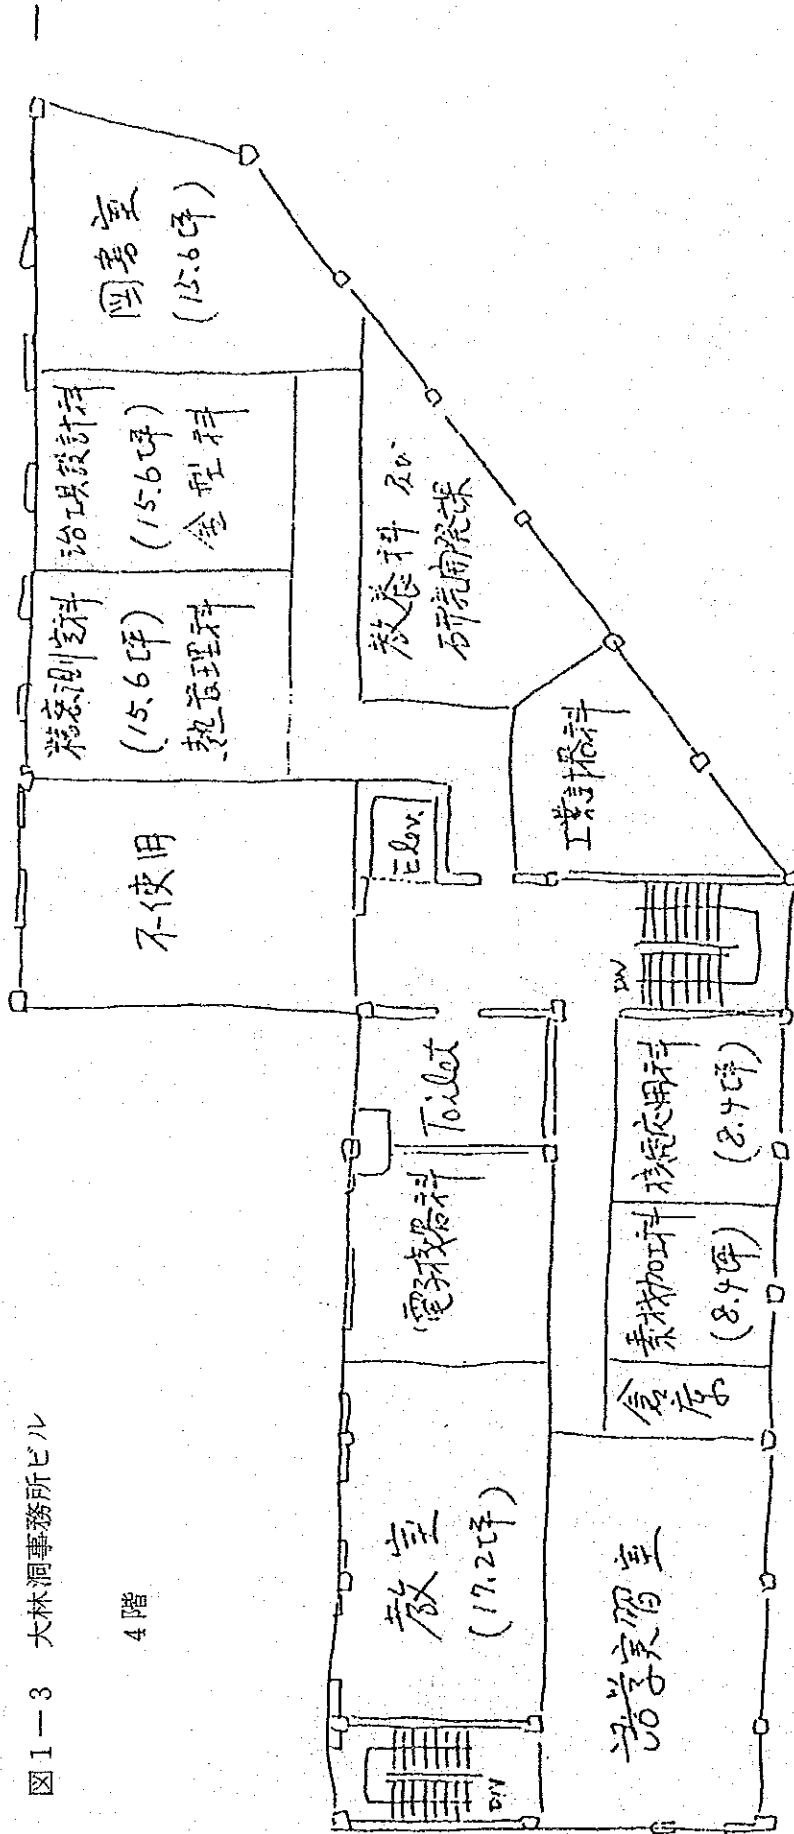 図1－3 大林洞事務所ビル
4階
図書室
(15.6坪)
治工具設計科
(15.6坪)
金型科
精密測定科
(15.6坪)
熱管理科
不使用
Elev.
教養科 及び
研究開発課
工業計器科
DN
Toilet
電子機器科
応用科
(8.4坪)
素材加工科
(8.4坪)
倉庫
教室
(17.2坪)
語学実習室
DN